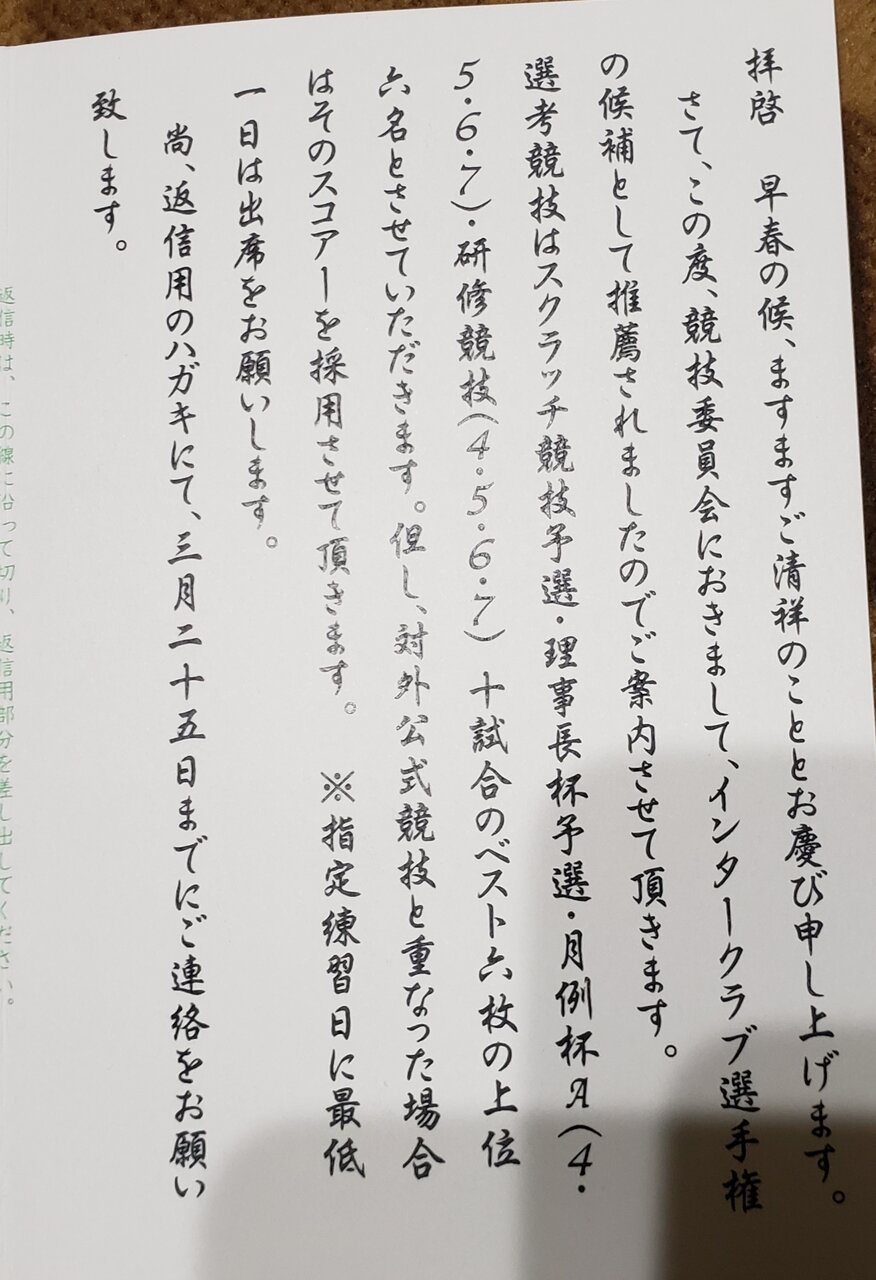 拝啓　早春の候、ますますご清祥のこととお慶び申し上げます。
さて、この度、競技委員会におきまして、インタークラブ選手権
の候補として推薦されましたのでご案内させて頂きます。
選考競技はスクラッチ競技予選・理事長杯予選・月例杯A（4・
5・6・7）・研修競技（4・5・6・7）十試合のベスト六枚の上位
六名とさせていただきます。但し、対外公式競技と重なった場合
はそのスコアーを採用させて頂きます。　※指定練習日に最低
一日は出席をお願いします。
尚、返信用のハガキにて、三月二十五日までにご連絡をお願い
致します。
返信時は、この線に沿って切り、返信用部分を差し出してください。